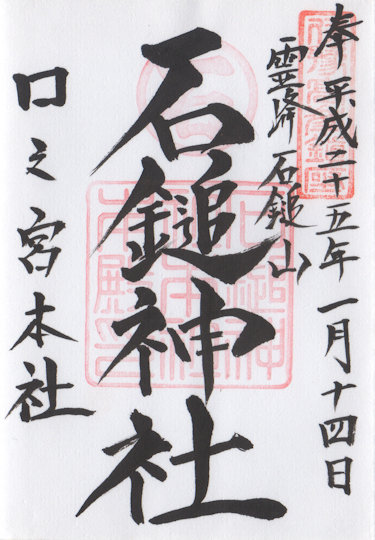 奉 平成二十五年 一月十四日
霊峰 石鎚山
石鎚神社
口之宮本社